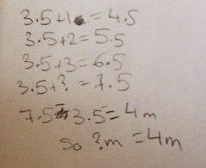 3.5+1=4.5
3.5+2=5.5
3.5+3=6.5
3.5+?=7.5
7.5-3.5=4m
so ?m=4m